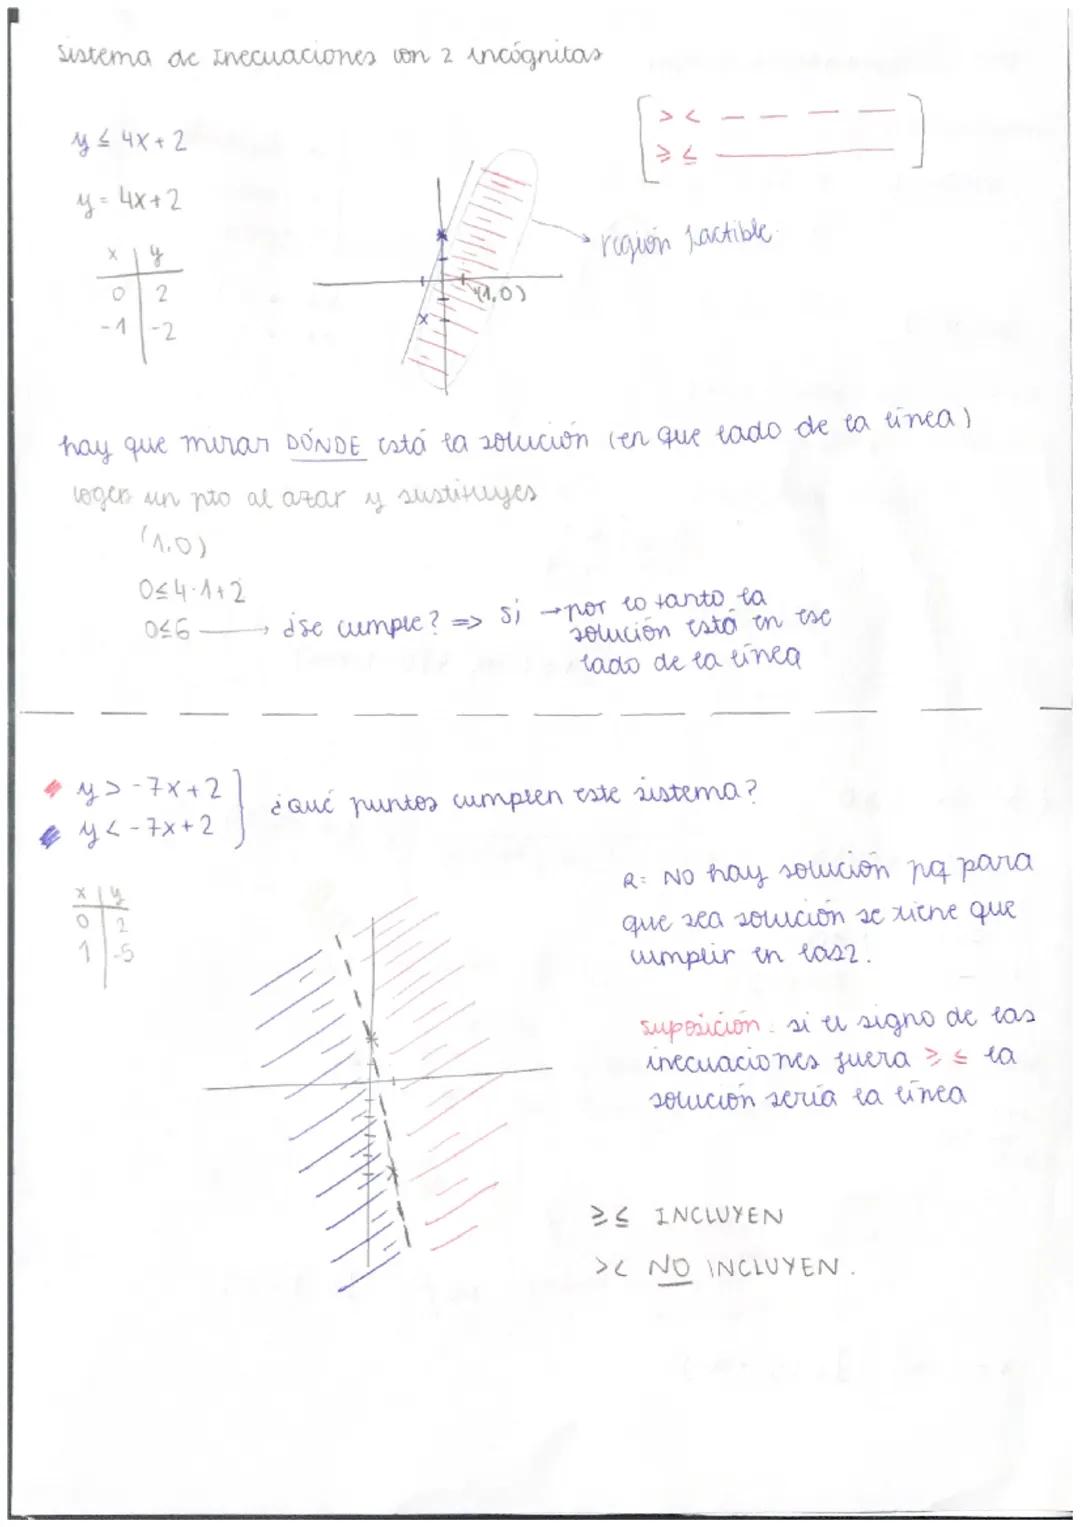 Sistema de Inecuaciones con 2 incógnitas
> < — — — —
≥ ≤ ————
y ≤ 4x + 2
y = 4x + 2
x | y
0 | 2
-1 | -2
(1,0)
región factible.
hay que mirar DÓNDE está la solución (en que lado de la línea)
coges un pto al azar y sustituyes
(1,0)
0 ≤ 4·1 + 2
0 ≤ 6 → ¿se cumple? => Sí → por lo tanto la
solución está en ese
lado de la línea
y > -7x + 2
y < -7x + 2
¿Qué puntos cumplen este sistema?
x | y
0 | 2
1 | -5
R: No hay solución pq para
que sea solución se tiene que
cumplir en las 2.
suposición: si el signo de las
inecuaciones fuera ≥ ≤ la
solución sería la línea
≥ ≤ INCLUYEN
> < NO INCLUYEN.